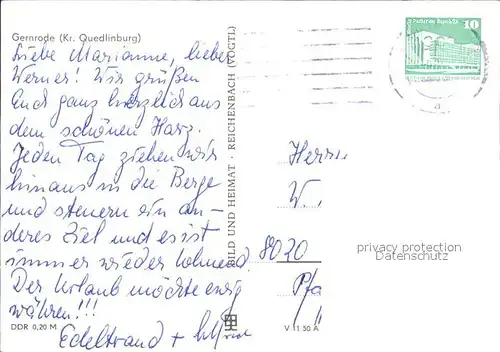 Gernrode (Kr. Quedlinburg)
Liebe Marianne, lieber
Werner! Wir grüßen
Euch ganz herzlich aus
dem schönen Harz.
Jeden Tag ziehen wir
hinaus in die Berge
und steuern ein an-
deres Ziel und es ist
immer wieder lohnend.
Der Urlaub möchte ewig
währen!!!
Edeltraud +
DDR 0,20 M
BILD UND HEIMAT · REICHENBACH (VOGTL)
V 11 50 A
10
Palast der Republik
Herrn
W.
8020
privacy protection
Datenschutz